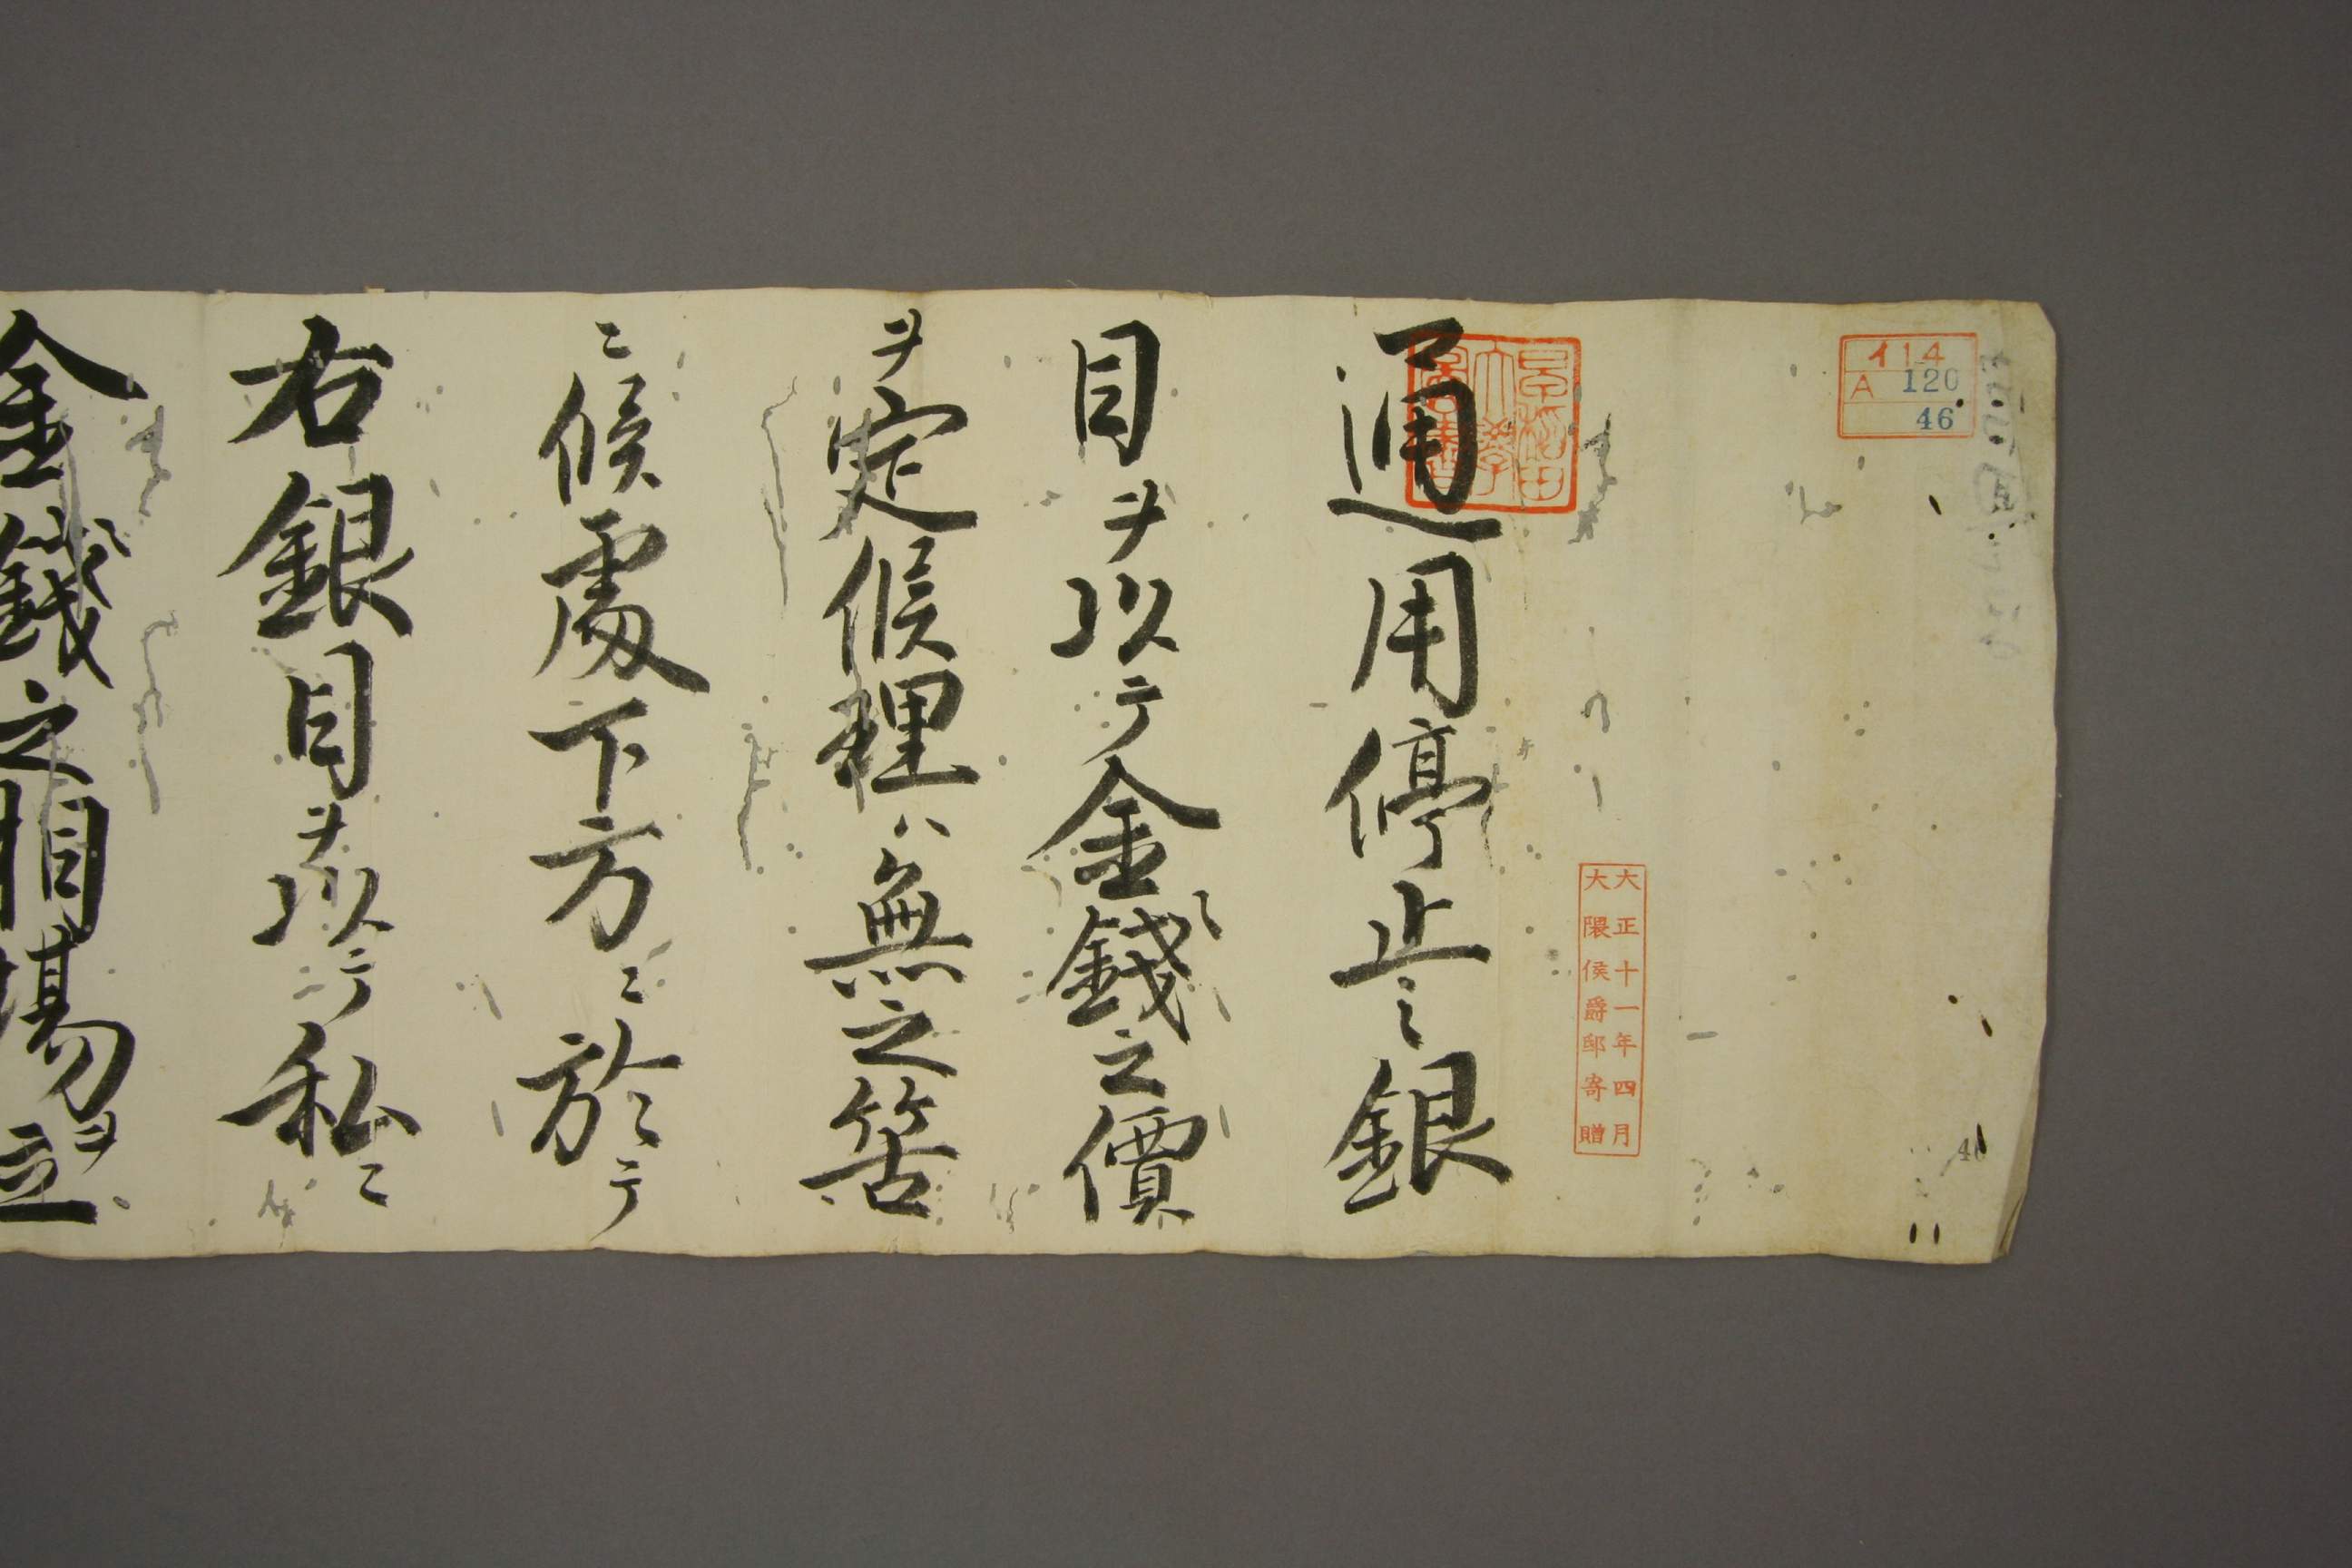 イ14
A 120
46
大正十一年四月
大隈侯爵邸寄贈
早稲田
大学
図書
46
通用停止之銀
目ヲ以テ金錢之價
ヲ定候理ハ無之筈
ニ候處下方ニ於テ
右銀目ヲ以テ私ニ
金錢之相場ヲ立